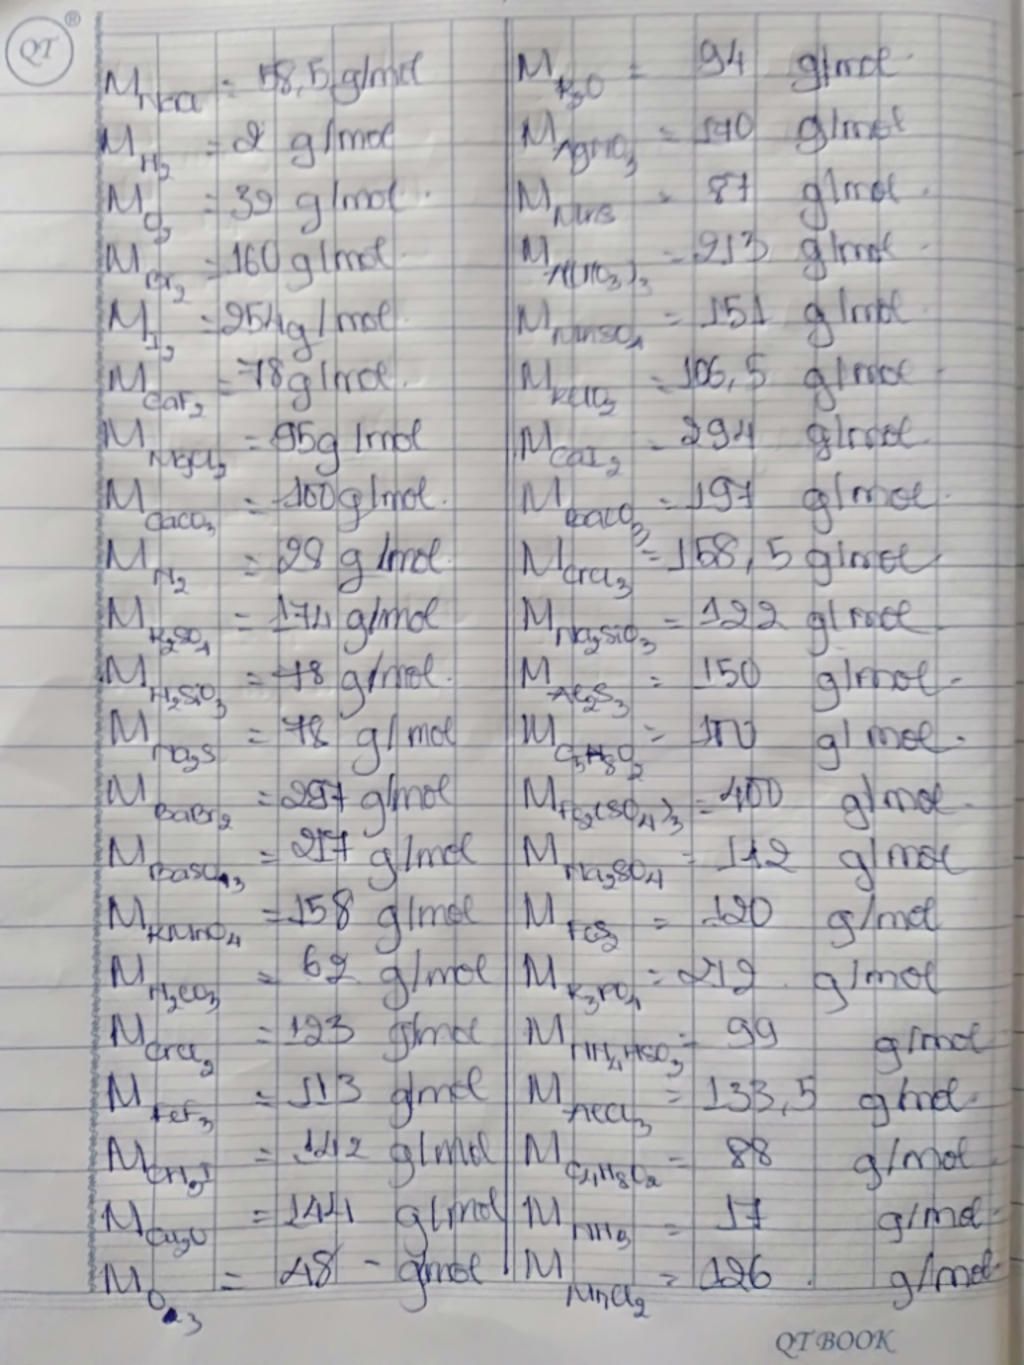 QT ®
M NaCl = 58,5 g/mol
M H2 = 2 g/mol
M O2 = 32 g/mol.
M Br2 = 160 g/mol.
M I2 = 254 g/mol.
M CaF2 = 78 g/mol.
M MgCl2 = 95 g/mol
M CaCO3 = 100 g/mol.
M N2 = 28 g/mol.
M K2SO4 = 174 g/mol
M H2SiO3 = 78 g/mol.
M Na2S = 78 g/mol
M BaBr2 = 297 g/mol
M BaSO3 = 217 g/mol
M KMnO4 = 158 g/mol
M H2CO3 = 62 g/mol
M CrCl2 = 123 g/mol
M FeF3 = 113 g/mol
M CH3I = 142 g/mol
M Cu2O = 144 g/mol
M O3 = 48 g/mol
M K2O = 94 g/mol.
M AgNO3 = 170 g/mol
M MnS = 87 g/mol.
M Al(NO3)3 = 213 g/mol.
M MnSO4 = 151 g/mol
M KClO2 = 106,5 g/mol
M CaI2 = 294 g/mol.
M BaCO3 = 197 g/mol.
M CrCl3 = 158,5 g/mol
M Na2SiO3 = 122 g/mol
M Al2S3 = 150 g/mol.
M C5H8O2 = 100 g/mol.
M Fe2(SO4)3 = 400 g/mol.
M Na2SO4 = 142 g/mol
M FeS2 = 120 g/mol
M K3PO4 = 212 g/mol
M NH4HSO3 = 99 g/mol
M AlCl3 = 133,5 g/mol.
M C4H8O2 = 88 g/mol
M NH3 = 17 g/mol.
M MnCl2 = 126 g/mol.
QT BOOK